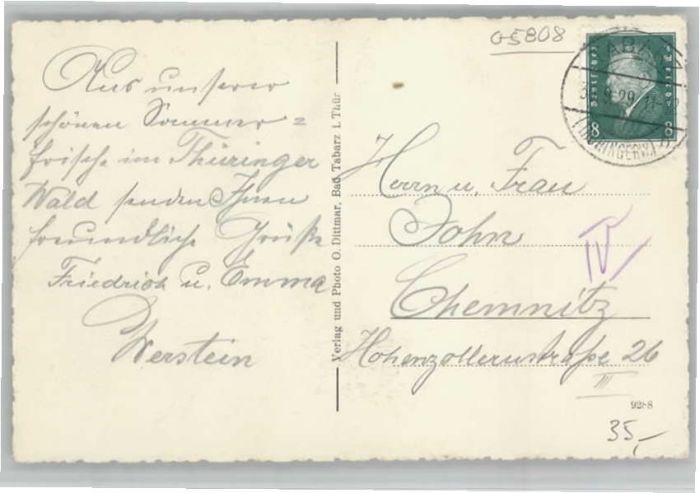 Aus unserer
schönen Sommer=
frische im Thüringer
Wald senden Ihnen
freundliche Grüße
Friedrich u. Emma
Werstein
Verlag und Photo O. Dittmar, Bad Tabarz i. Thür
05808
TABARZ
THÜRINGERW.
8
Herrn u. Frau
John
IV
Chemnitz
Hohenzollernstraße 26
III
9288
35,-